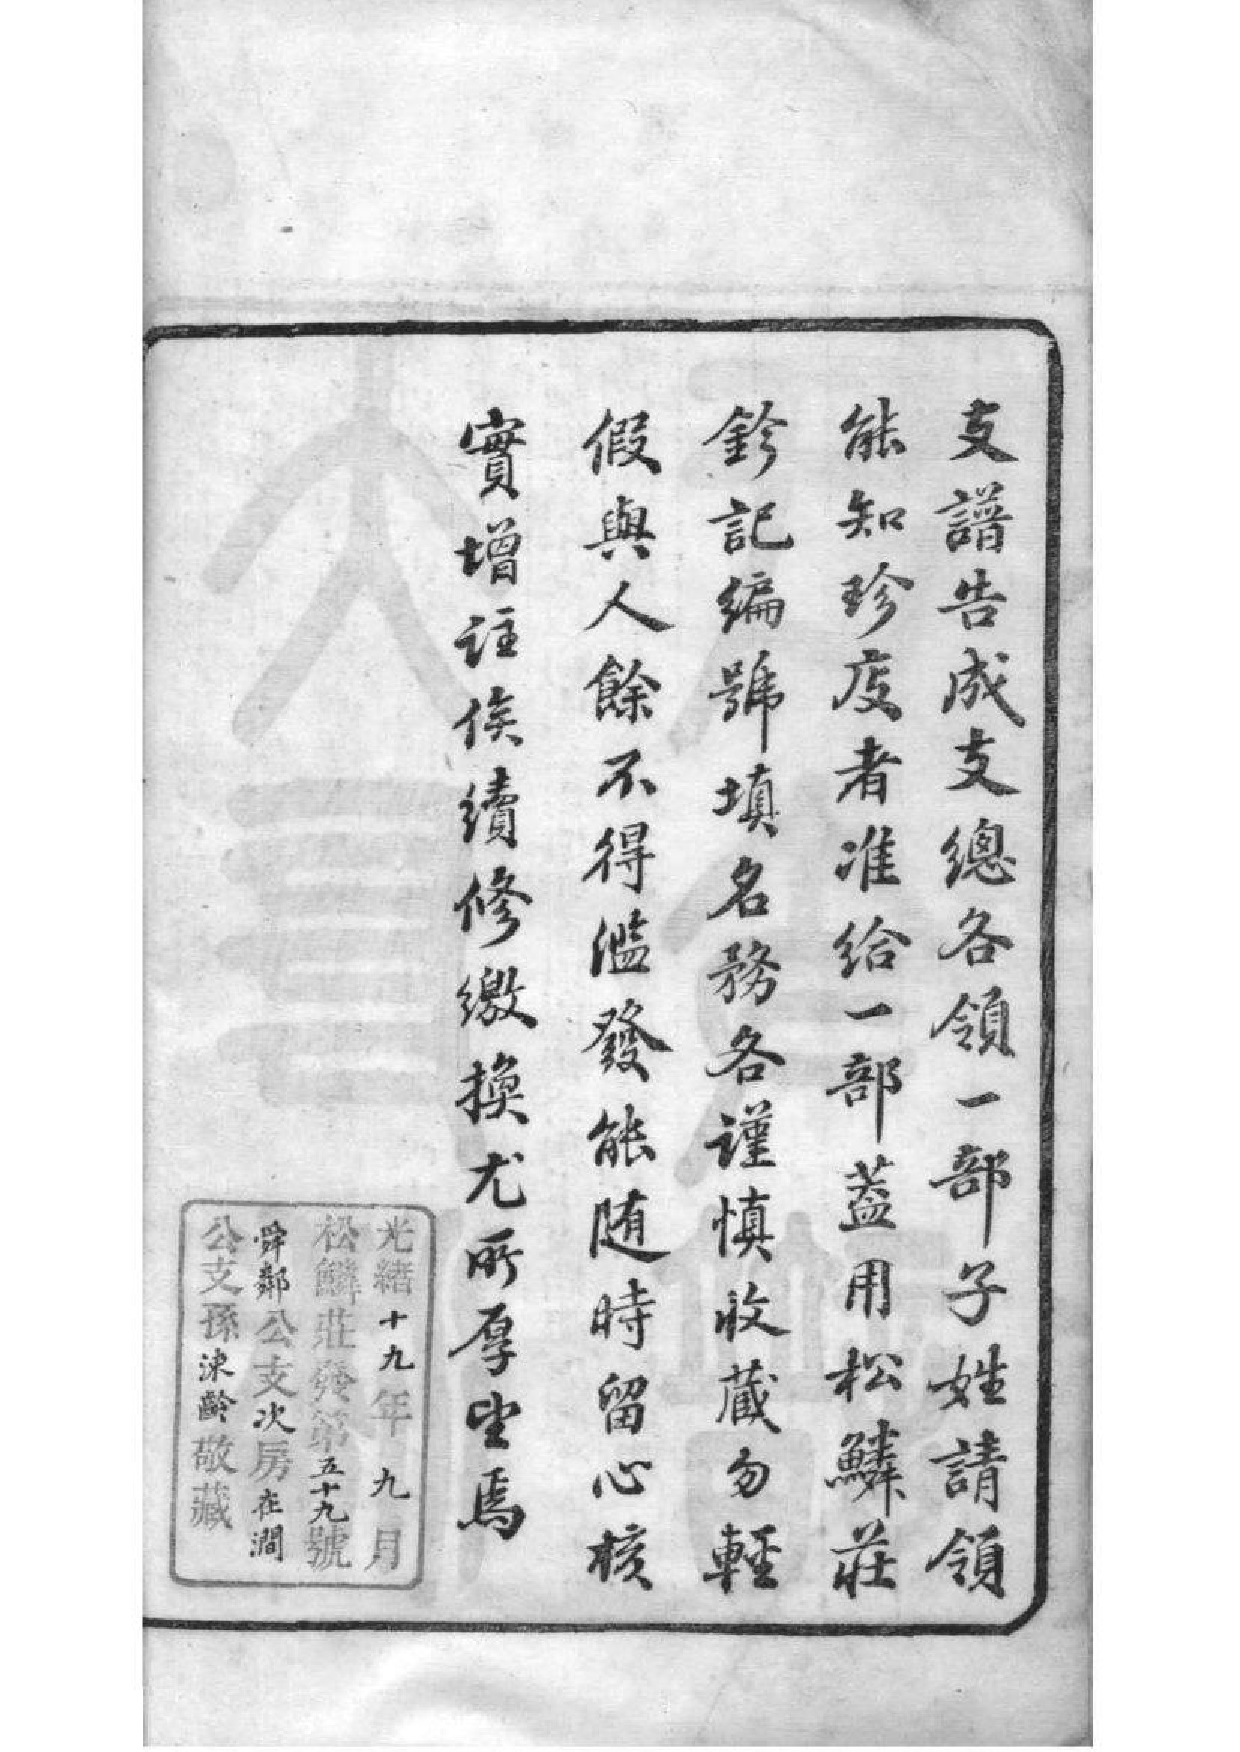 支譜告成支總各領一部子姓請領
能知珍庋者准給一部蓋用松鱗莊
鈐記編號填名務各謹慎收藏勿輕
假與人餘不得濫發能随時留心核
實增註俟續修繳換尤所厚望焉
光緒十九年九月
松鱗莊發第五十九號
舜鄰公支次房在澗
公支孫涑齡敬藏